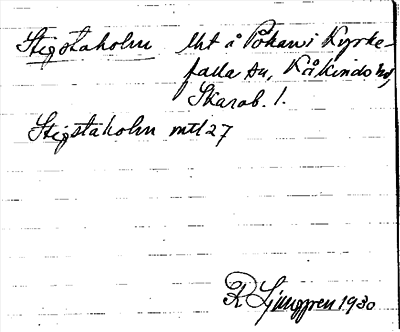 Stigstaholm lht å Pökan i Kyrke-
falla sn, Kåkinds hd,
Skarab. l.
Stigstaholm mtl 27
R Ljunggren 1930